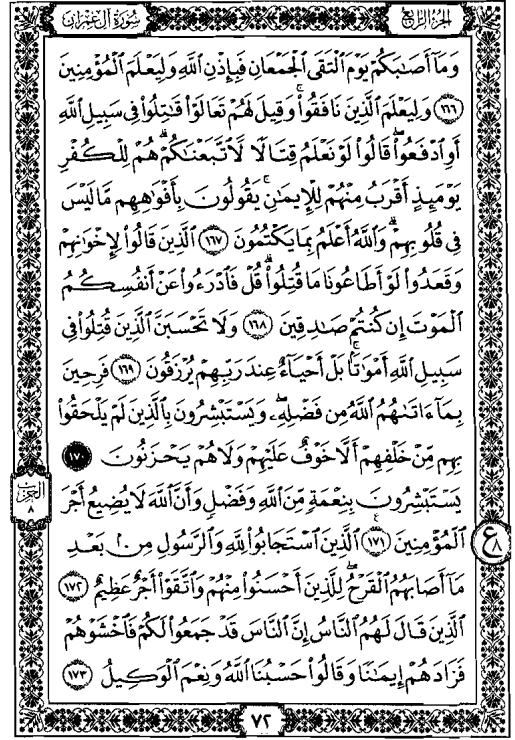 الجزء الرابع
سورة آل عمران
وَمَآ أَصَٰبَكُمْ يَوْمَ ٱلْتَقَى ٱلْجَمْعَانِ فَبِإِذْنِ ٱللَّهِ وَلِيَعْلَمَ ٱلْمُؤْمِنِينَ
١٦٦ وَلِيَعْلَمَ ٱلَّذِينَ نَافَقُوا۟ ۚ وَقِيلَ لَهُمْ تَعَالَوْا۟ قَٰتِلُوا۟ فِى سَبِيلِ ٱللَّهِ
أَوِ ٱدْفَعُوا۟ ۖ قَالُوا۟ لَوْ نَعْلَمُ قِتَالًا لَّٱتَّبَعْنَٰكُمْ ۗ هُمْ لِلْكُفْرِ
يَوْمَئِذٍ أَقْرَبُ مِنْهُمْ لِلْإِيمَٰنِ ۚ يَقُولُونَ بِأَفْوَٰهِهِم مَّا لَيْسَ
فِى قُلُوبِهِمْ ۗ وَٱللَّهُ أَعْلَمُ بِمَا يَكْتُمُونَ ١٦٧ ٱلَّذِينَ قَالُوا۟ لِإِخْوَٰنِهِمْ
وَقَعَدُوا۟ لَوْ أَطَاعُونَا مَا قُتِلُوا۟ ۗ قُلْ فَٱدْرَءُوا۟ عَنْ أَنفُسِكُمُ
ٱلْمَوْتَ إِن كُنتُمْ صَٰدِقِينَ ١٦٨ وَلَا تَحْسَبَنَّ ٱلَّذِينَ قُتِلُوا۟ فِى
سَبِيلِ ٱللَّهِ أَمْوَٰتًۢا ۚ بَلْ أَحْيَآءٌ عِندَ رَبِّهِمْ يُرْزَقُونَ ١٦٩ فَرِحِينَ
بِمَآ ءَاتَىٰهُمُ ٱللَّهُ مِن فَضْلِهِۦ وَيَسْتَبْشِرُونَ بِٱلَّذِينَ لَمْ يَلْحَقُوا۟
بِهِم مِّنْ خَلْفِهِمْ أَلَّا خَوْفٌ عَلَيْهِمْ وَلَا هُمْ يَحْزَنُونَ ١٧٠
يَسْتَبْشِرُونَ بِنِعْمَةٍ مِّنَ ٱللَّهِ وَفَضْلٍ وَأَنَّ ٱللَّهَ لَا يُضِيعُ أَجْرَ
ٱلْمُؤْمِنِينَ ١٧١ ٱلَّذِينَ ٱسْتَجَابُوا۟ لِلَّهِ وَٱلرَّسُولِ مِنۢ بَعْدِ
مَآ أَصَابَهُمُ ٱلْقَرْحُ ۚ لِلَّذِينَ أَحْسَنُوا۟ مِنْهُمْ وَٱتَّقَوْا۟ أَجْرٌ عَظِيمٌ ١٧٢
ٱلَّذِينَ قَالَ لَهُمُ ٱلنَّاسُ إِنَّ ٱلنَّاسَ قَدْ جَمَعُوا۟ لَكُمْ فَٱخْشَوْهُمْ
فَزَادَهُمْ إِيمَٰنًا وَقَالُوا۟ حَسْبُنَا ٱللَّهُ وَنِعْمَ ٱلْوَكِيلُ ١٧٣
الحزب
٨
ع
٨
٧٢